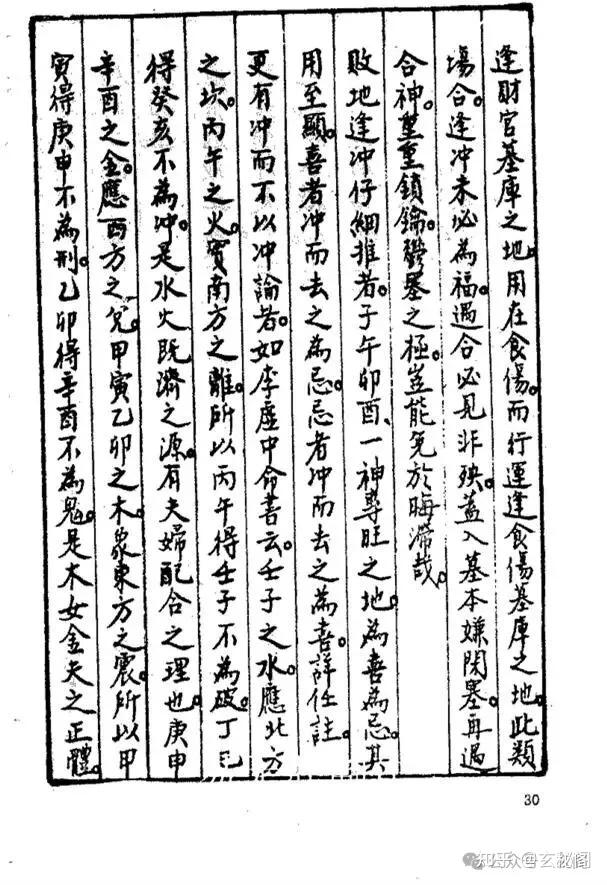 逢財官墓庫之地。用在食傷。而行運逢食傷墓庫之地。此類
場合。逢冲未必為福。遇合必見非殃。蓋入墓本嫌閉塞。再遇
合神。重重鎖鑰。鬱壘之極。豈能免於晦滯哉。
敗地逢冲仔細推者。子午卯酉、一神專旺之地。為喜為忌。其
用至顯。喜者冲而去之為忌。忌者冲而去之為喜。詳任註。
更有冲而不以冲論者。如李虛中命書云。壬子之水。應北方
之坎。丙午之火。實南方之離。所以丙午得壬子不為破。丁巳
得癸亥不為冲。是水火既濟之源。有夫婦配合之理也。庚申
辛酉之金。應西方之兌。甲寅乙卯之木。象東方之震。所以甲
寅得庚申不為刑。乙卯得辛酉不為鬼。是木女金夫之正體。
30
知乎 @玄秘阁